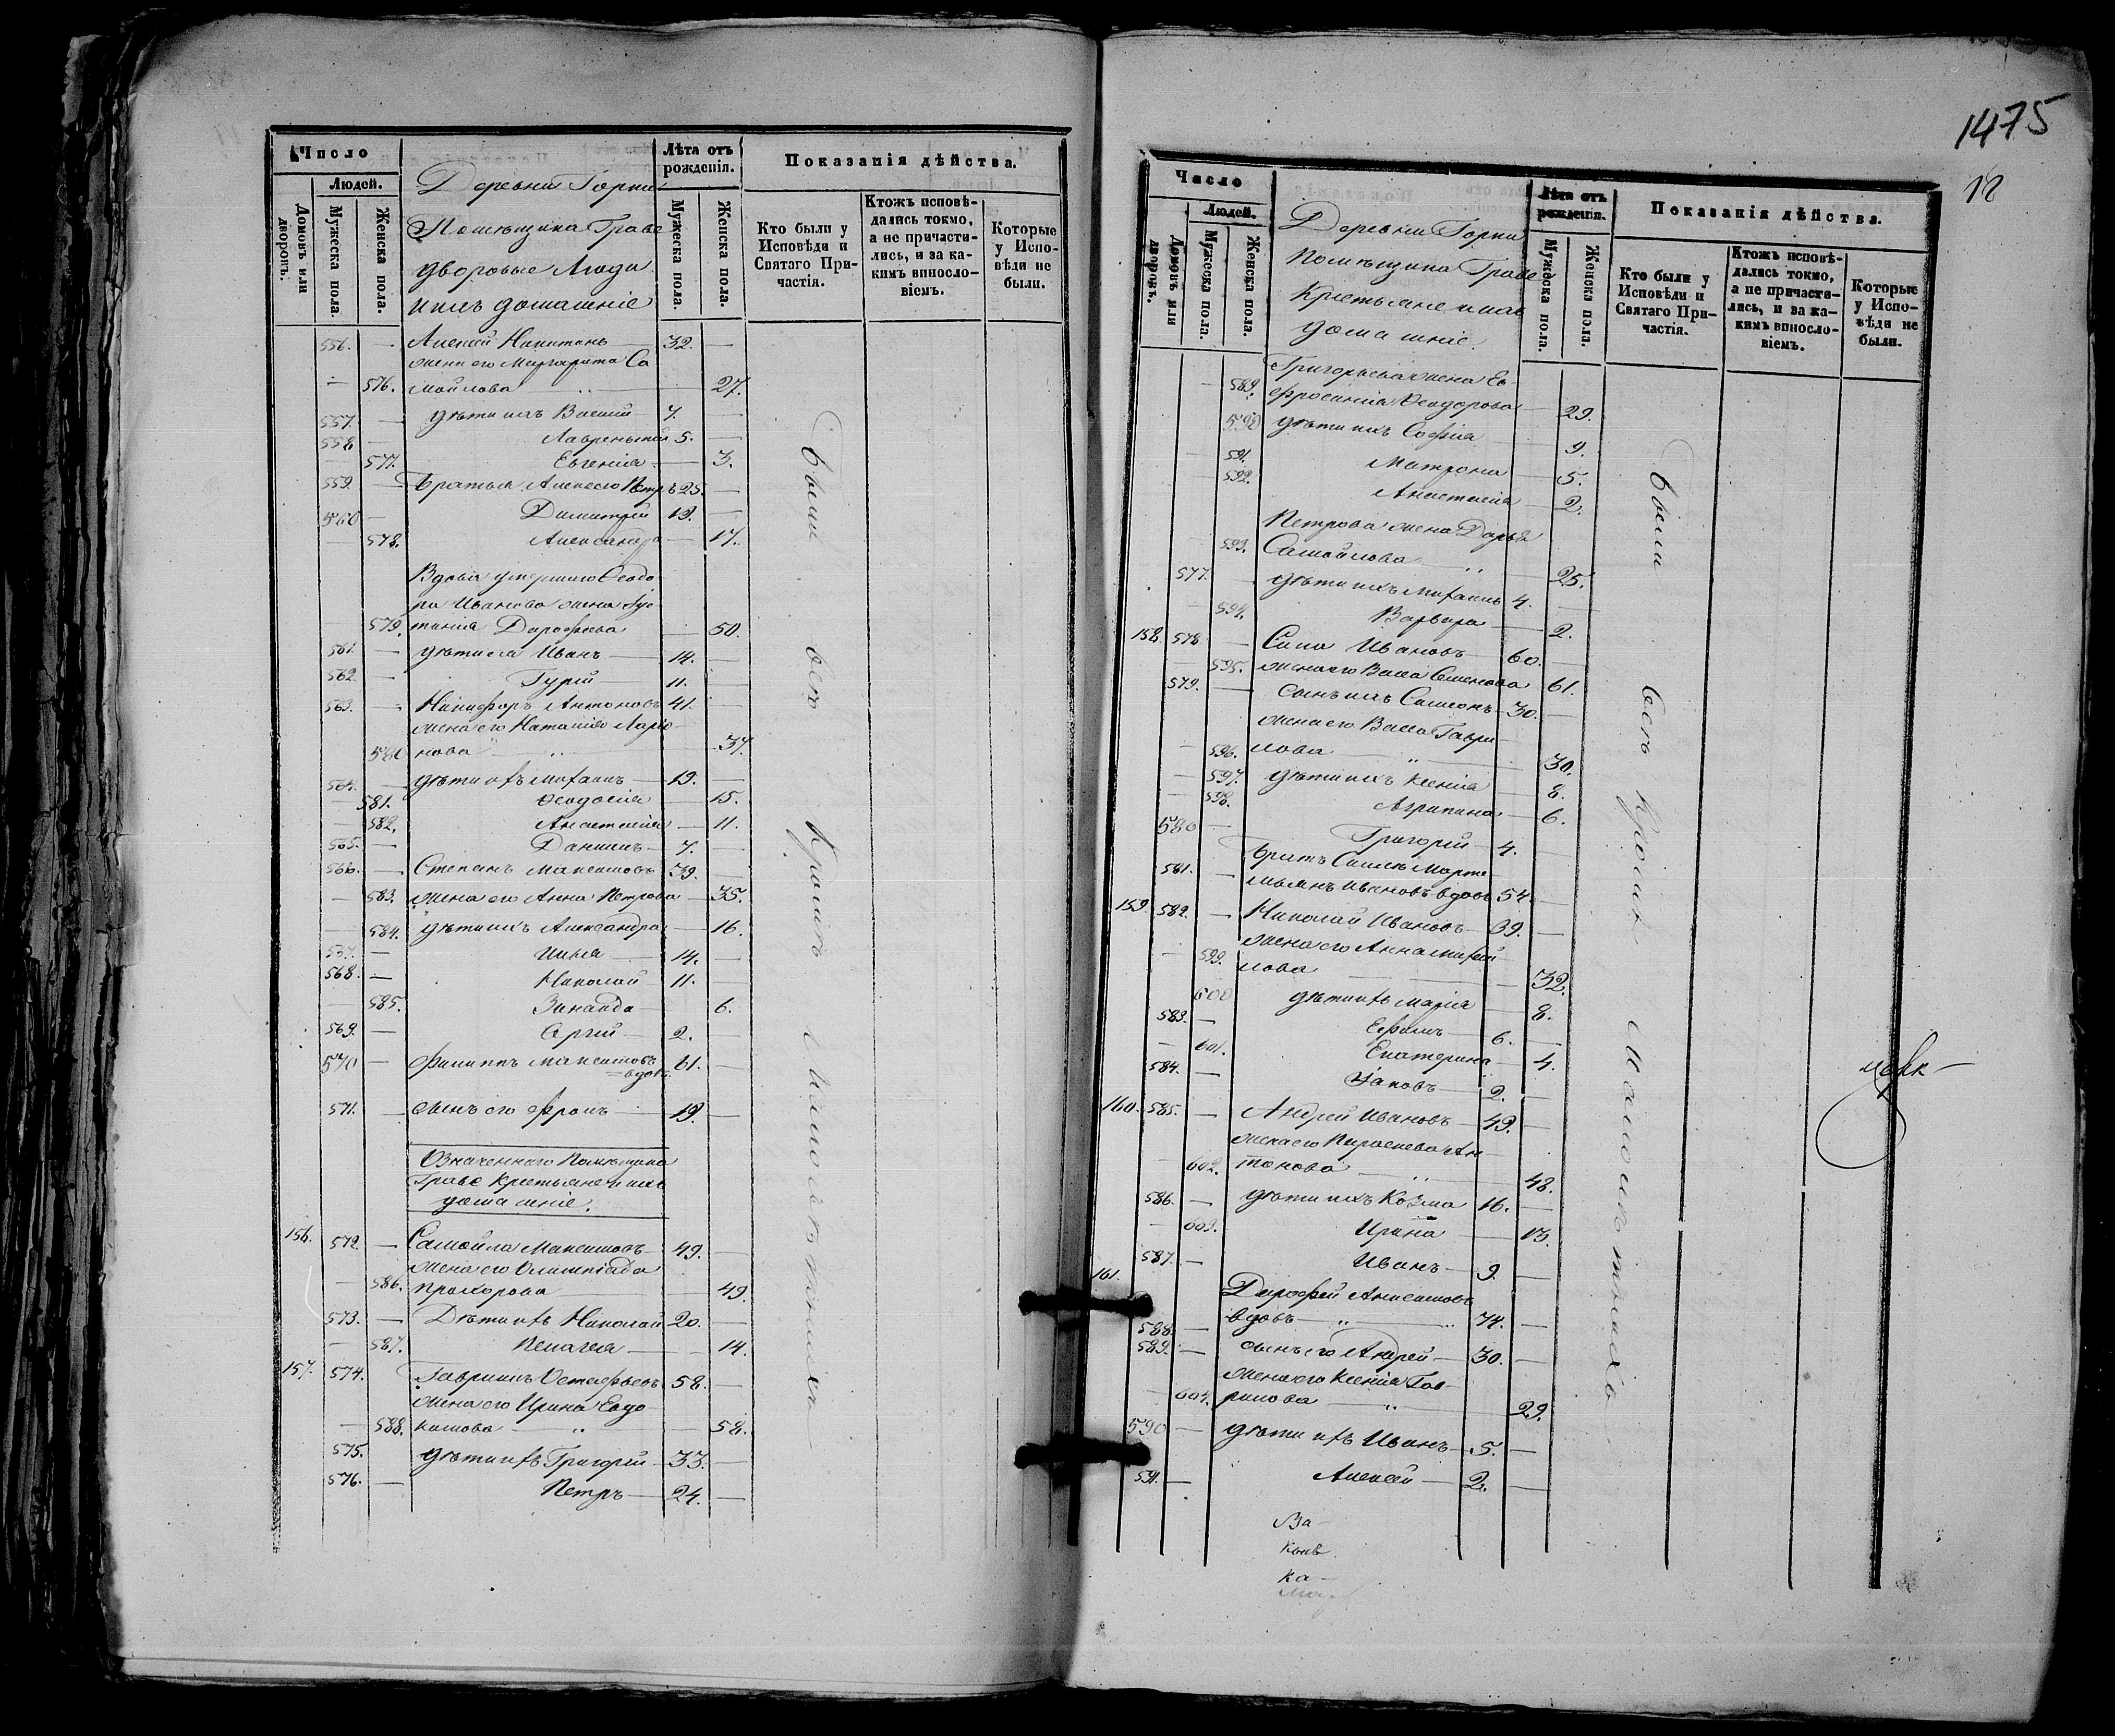 Число
Людей.
Домовъ или дворовъ.
Мужеска пола.
Женска пола.
Лѣта отъ рожденія.
Мужеска пола.
Женска пола.
Показанія дѣйства.
Кто были у Исповѣди и Святаго Причастія.
Ктожъ исповѣдались токмо, а не причастились, и за какимъ винословіемъ.
Которые у Исповѣди не были.
Деревни Горки
Помѣщика Граве
дворовые Люди
и ихъ домашніе
556. — Алексѣй Никитинъ — 32. —
жена его Маргарита Са
— 576. мойлова „ — 27.
557. — дѣти ихъ Василій — 7. —
558 — Лаврентій 5. —
— 577. Евгенія — 3.
559. — Братья Алексѣя Петръ 25. —
560 — Димитрій 19. —
— 578. Александра — 17.
Вдова умершаго Ѳеодо
ра Иванова жена
579. Дорофѣева — 50.
561. — дѣти ея Иванъ — 14. —
562. — Гурій — 11. —
563. — Никифоръ Антоновъ 41. —
жена его Наталія Ларіо
580 нова „ — 37.
564. — дѣти ихъ Михаилъ — 19. —
— 581. Ѳеодосія — 15.
— 582. Анастасія — 11.
565. — Даніилъ — 7. —
566. — Степанъ Максимовъ 39. —
— 583. жена его Анна Петрова — 35.
— 584. дѣти ихъ Александра — 16.
567. — Илья — 14. —
568. — Николай — 11. —
— 585. Зинаида — 6.
569. — Сргій — 2. —
570 — Филиппъ Максимовъ 61. —
вдовъ
571. — сынъ его Фролъ — 19. —
Означеннаго Помѣщика
Граве Крестьяне и ихъ
домашніе.
156. 572. — Самойла Максимовъ 49. —
жена его Олимпіада
— 586. Прохорова — 49.
573. — Дѣти ихъ Николай 20. —
— 587. Пелагея — 14.
157. 574. Гавріилъ Остафьевъ 58. —
жена его Ирина Евдо
— 588. кимова — „ — 58.
575. дѣти ихъ Григорій — 33. —
576. — Петръ — 24. —
были всѣ кромѣ малолѣтнихъ
1475
12
Число
Людей.
Домовъ или дворовъ.
Мужеска пола.
Женска пола.
Лѣта отъ рожденія.
Мужеска пола.
Женска пола.
Показанія дѣйства.
Кто были у Исповѣди и Святаго Причастія.
Ктожъ исповѣдались токмо, а не причастились, и за какимъ винословіемъ.
Которые у Исповѣди не были.
Деревни Горки
Помѣщика Граве
Крестьяне и ихъ
домашніе.
Григорьева жена Ев
— 589. фросинія Ѳеодорова — 29.
590 дѣти ихъ Софія — 9.
— 591. Матрона — 5.
— 592. Анастасія — 2.
Петрова жена Дарья
— 593. Самойлова — „ — 25.
577. — дѣти ихъ Михаилъ 4. —
— 594. Варвара — 2.
158. 578 — Сила Ивановъ — 60. —
— 595. жена его Васса Семенова 61.
579. — сынъ ихъ Самсонъ — 30. —
жена его Васса Гаври
— 596. лова — „ — 30.
— 597. дѣти ихъ Ксенія — 8.
— 598. Агрипина — 6.
580 — Григорій — 4. —
братъ Силы Марте
581. — мьянъ Ивановъ вдовъ 54. —
159. 582. — Николай Ивановъ — 39. —
жена его Анна Михай
— 599. лова — 32.
600 дѣти ихъ Марія — 8.
583. — Ефимъ — 6. —
— 601. Екатерина — 4.
584. — Яковъ — 2. —
160. 585. — Андрей Ивановъ — 49. —
жена его Параскева Ан
— 602. тонова — „ — 48.
586. — дѣти ихъ Козма — 16. —
— 603. Ирина — 13.
587. — Иванъ — 9. —
161. Дорофей Анисимовъ
588. — вдовъ — „ — 74. —
589. — сынъ его Андрей — 30. —
жена его Ксенія Гав
— 604. рилова — „ — 29.
590 — дѣти ихъ Иванъ — 5. —
591. — Алексѣй — 2. —
были всѣ кромѣ малолѣтнихъ
За
ка